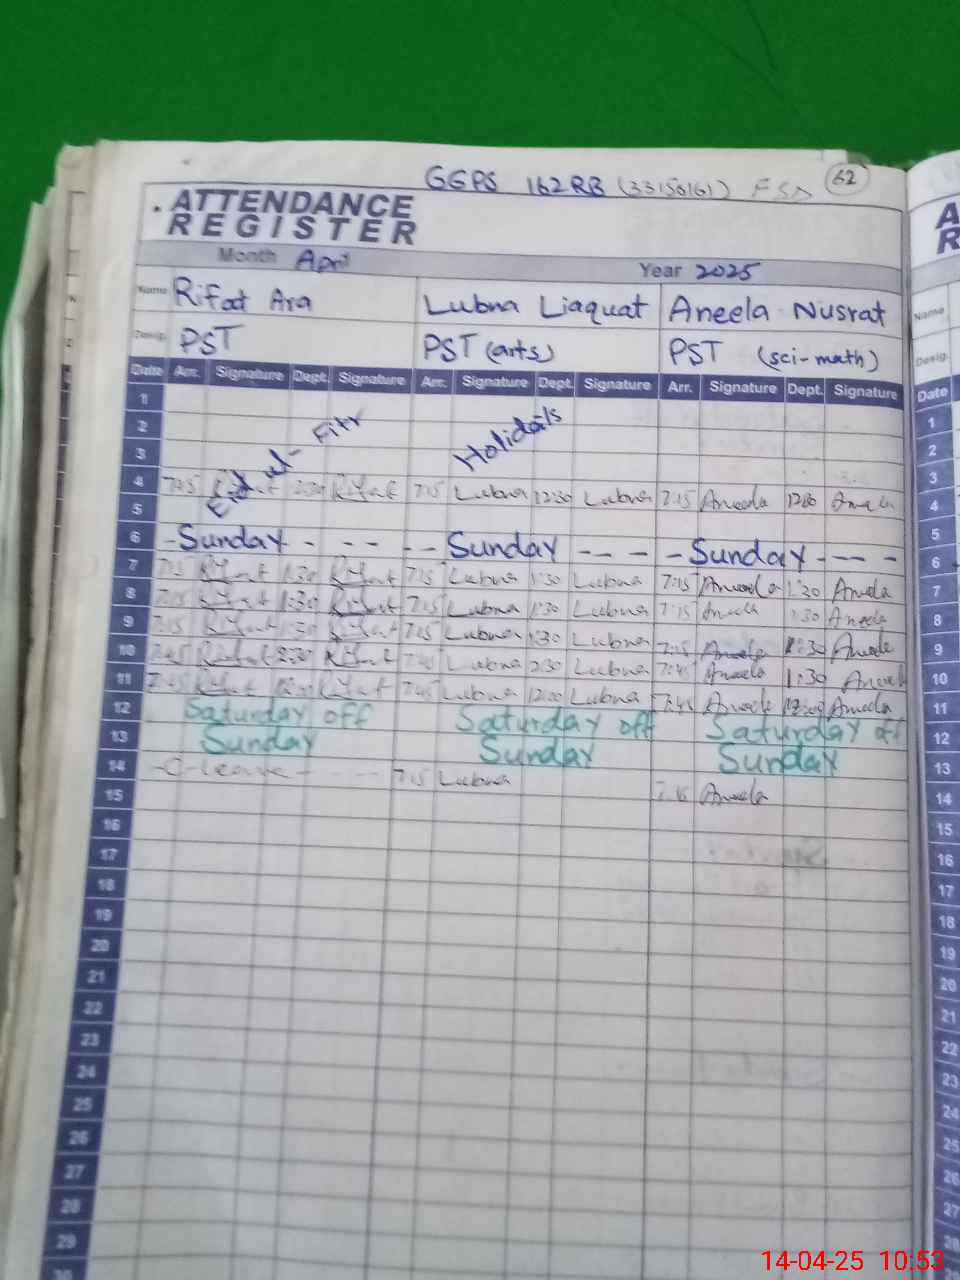 GGPS 162RB (33156161) FSD 62
ATTENDANCE
REGISTER
Month April Year 2025
Name Rifat Ara Lubna Liaquat Aneela Nusrat Name
Desig. PST PST (arts) PST (sci-math) Desig.
Date Arr. Signature Dept. Signature Arr. Signature Dept. Signature Arr. Signature Dept. Signature Date
1 1
2 Eid-ul-Fitr Holidays 2
3 3
4 Rifat Rifat 7:15 Lubna 12:30 Lubna 7:15 Aneela 12:30 Aneela 4
5 5
6 Sunday Sunday Sunday 6
7 7:15 Rifat 1:30 Rifat 7:15 Lubna 1:30 Lubna 7:15 Aneela 1:30 Aneela 7
8 7:15 Rifat 1:30 Rifat 7:15 Lubna 1:30 Lubna 7:15 Aneela 1:30 Aneela 8
9 7:15 Rifat 1:30 Rifat 7:15 Lubna 1:30 Lubna 7:15 Aneela 1:30 Aneela 9
10 7:45 Rifat 2:30 Rifat 7:45 Lubna 2:30 Lubna 7:45 Aneela 1:30 Aneela 10
11 7:45 Rifat 12:00 Rifat 7:45 Lubna 12:00 Lubna 7:45 Aneela 12:00 Aneela 11
12 Saturday off Saturday off Saturday off 12
13 Sunday Sunday Sunday 13
14 -C-leave- 7:15 Lubna 7:15 Aneela 14
15 15
16 16
17 17
18 18
19 19
20 20
21 21
22 22
23 23
24 24
25 25
26 26
27 27
28 28
29
30
14-04-25 10:53